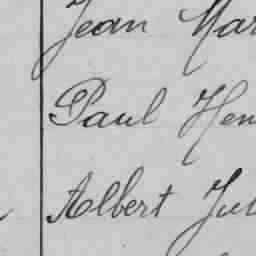 Jean Mar
Paul Hen
Albert Jul